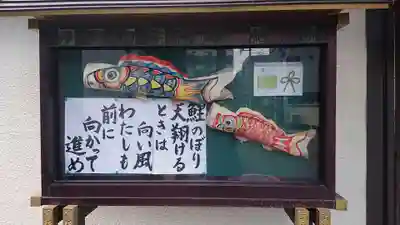 鮭のぼり
天翔ける
ときは
向い風
わたしも
前に
向かって
進め